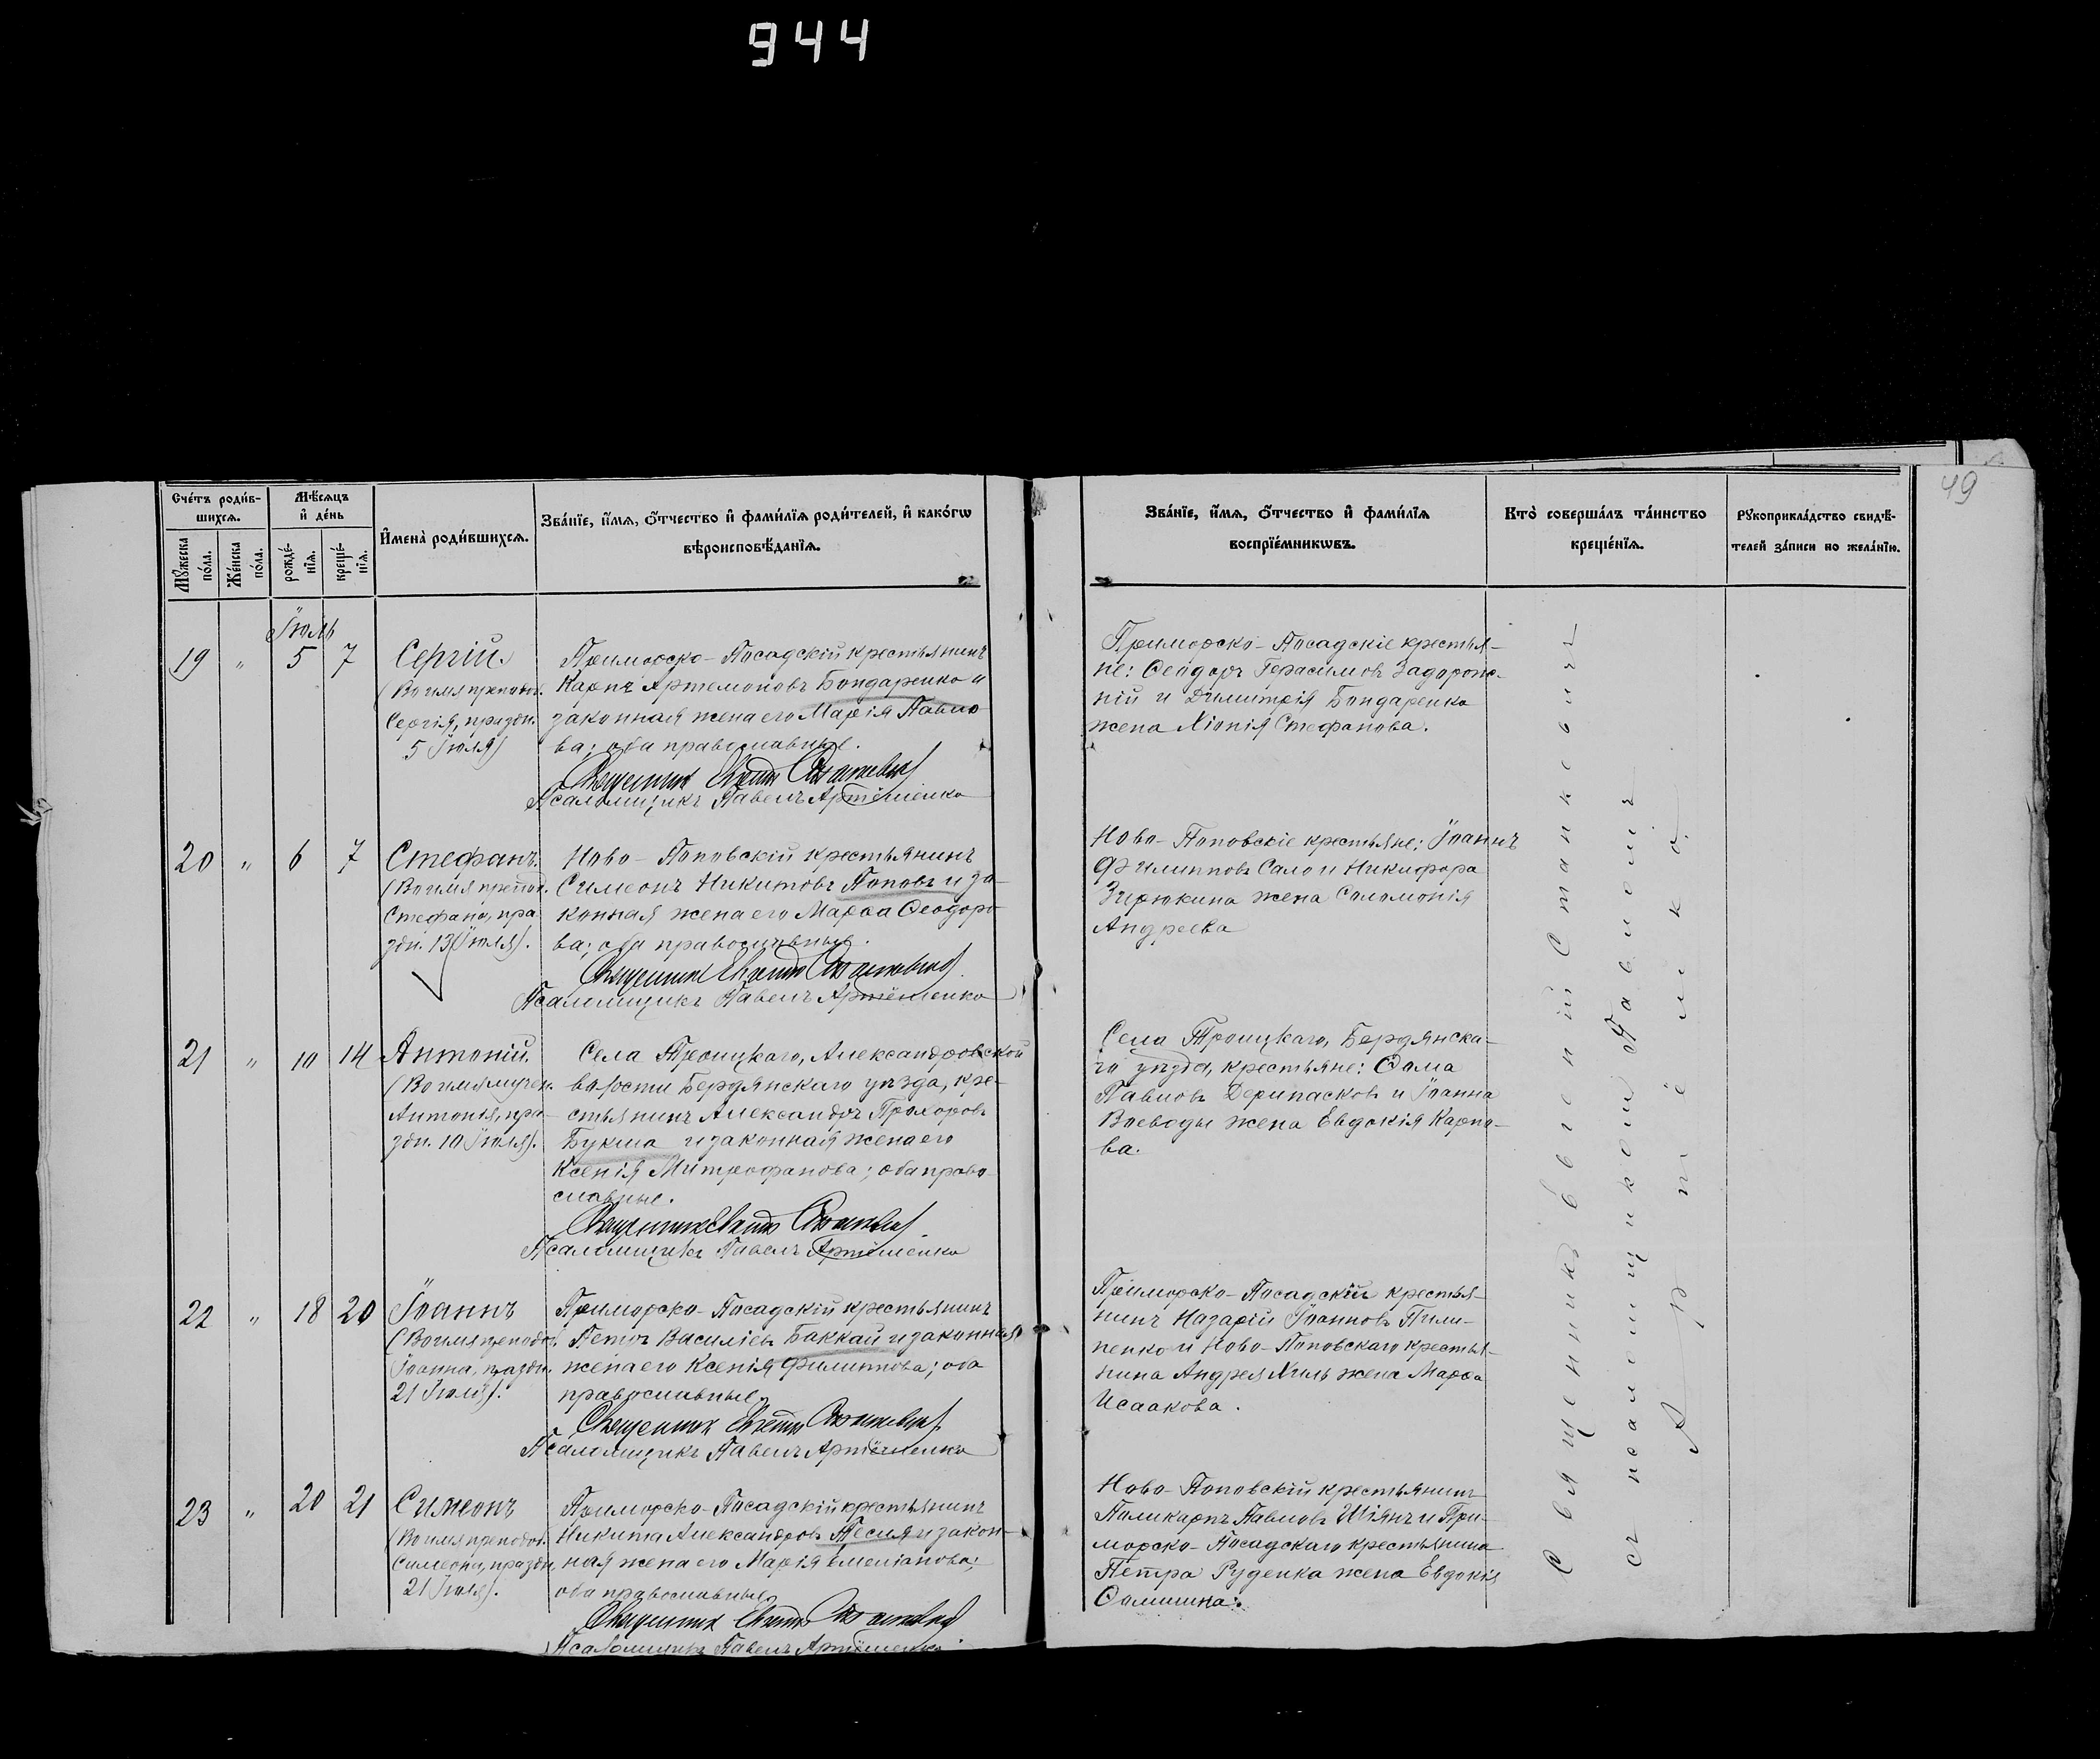 944
49
Счетъ родив-
шихся.
Мѣсяцъ
и день
Мужеска
пола.
Женска
пола.
рожде-
нія.
креще-
нія.
Имена родившихся.
Званіе, имя, отчество и фамилія родителей, и какогѡ
вѣроисповѣданія.
Званіе, имя, отчество и фамилія
воспріемникѡвъ.
Кто совершалъ таинство
крещенія.
Рукоприкладство свидѣ-
телей записи по желанію.
Іюль
19 „ 5 7
Сергій.
(Во имя преподоб.
Сергія, праздн.
5 Іюля)
Приморско-Посадскій крестьянинъ
Карпъ Артемоновъ Бондаренко и
законная жена его Марія Павло
ва; оба православные.
Священникъ Евгеній Станкевичъ
Псаломщикъ Павелъ Артёменко
Приморско-Посадскіе крестья-
не: Ѳеодоръ Герасимовъ Задорож-
ній и Димитрія Бондаренко
жена Хіонія Стефанова.
20 „ 6 7
Стефанъ.
(Во имя препод.
Стефана, пра
здн. 13 Іюля).
Ново-Поповскій крестьянинъ
Симеонъ Никитовъ Поповъ и за-
конная жена его Марѳа Ѳеодоро
ва; оба православные.
Священникъ Евгеній Станкевичъ
Псаломщикъ Павелъ Артёменко
Ново-Поповскіе крестьяне: Іоаннъ
Филипповъ Сало и Никифора
Зирюкина жена Соломонія
Андреева
21 „ 10 14
Антоній.
(Во имя мучен.
Антонія, пра-
здн. 10 Іюля).
Села Троицкаго, Александровской
волости Бердянскаго уѣзда, кре-
стьянинъ Александръ Прохоровъ
Букша и законная жена его
Ксенія Митрофанова; оба право
славные.
Священникъ Евгеній Станкевичъ
Псаломщикъ Павелъ Артёменко
Села Троицкаго, Бердянска-
го уѣзда, крестьяне: Ѳома
Павловъ Дерипасковъ и Іоанна
Воеводы жена Евдокія Карпо-
ва.
22 „ 18 20
Іоаннъ
(Во имя преподоб.
Іоанна, праздн.
21 Іюля).
Приморско-Посадскій крестьянинъ
Петръ Василіевъ Баккай и законная
жена его Ксенія Филиппова; оба
православные.
Священникъ Евгеній Станкевичъ
Псаломщикъ Павелъ Артёменко
Приморско-Посадскій крестья-
нинъ Назарій Іоанновъ Пили-
пенко и Ново-Поповскаго крестья-
нина Андрея Хиль жена Марѳа
Исаакова.
23 „ 20 21
Симеонъ
(Во имя преподоб.
Симеона, праздн.
21 Іюля).
Приморско-Посадскій крестьянинъ
Никита Александровъ Песля и закон-
ная жена его Марія Емеліанова;
оба православные.
Священникъ Евгеній Станкевичъ
Псаломщикъ Павелъ Артёменко
Ново-Поповскій крестьянинъ
Поликарпъ Павловъ Шіянъ и При-
морско-Посадскаго крестьянина
Петра Руденка жена Евдокія
Ѳомишна.
Священникъ Евгеній Станкевичъ
съ псаломщикомъ Павломъ
Артёменко.